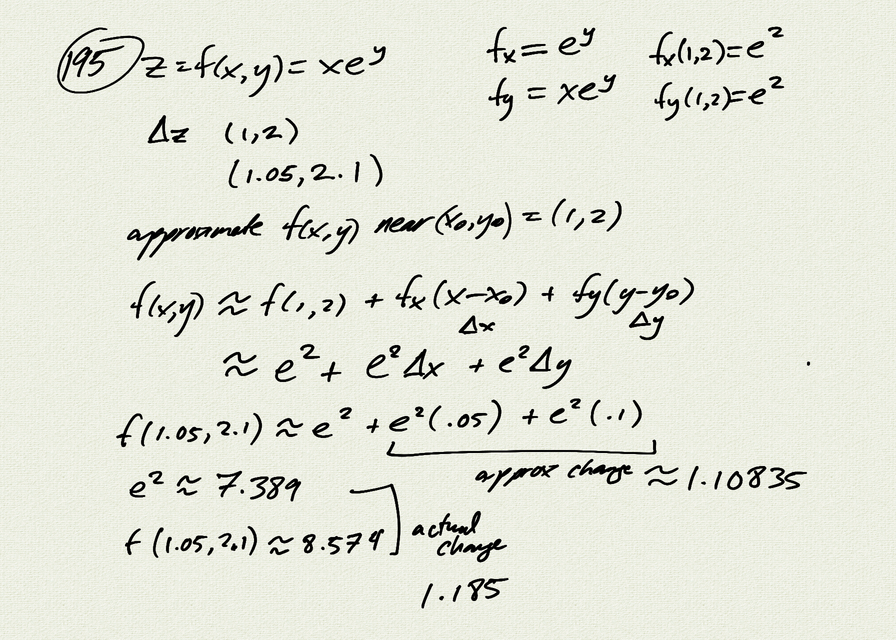 195 z = f(x,y) = xe^y
fx = e^y fx(1,2) = e^2
fy = xe^y fy(1,2) = e^2
Δz (1,2)
(1.05, 2.1)
approximate f(x,y) near (x₀,y₀) = (1,2)
f(x,y) ≈ f(1,2) + fx(x-x₀) + fy(y-y₀)
Δx Δy
≈ e^2 + e^2 Δx + e^2 Δy
f(1.05, 2.1) ≈ e^2 + e^2(.05) + e^2(.1)
approx change ≈ 1.10835
e^2 ≈ 7.389
f(1.05, 2.1) ≈ 8.574
actual
change
1.185